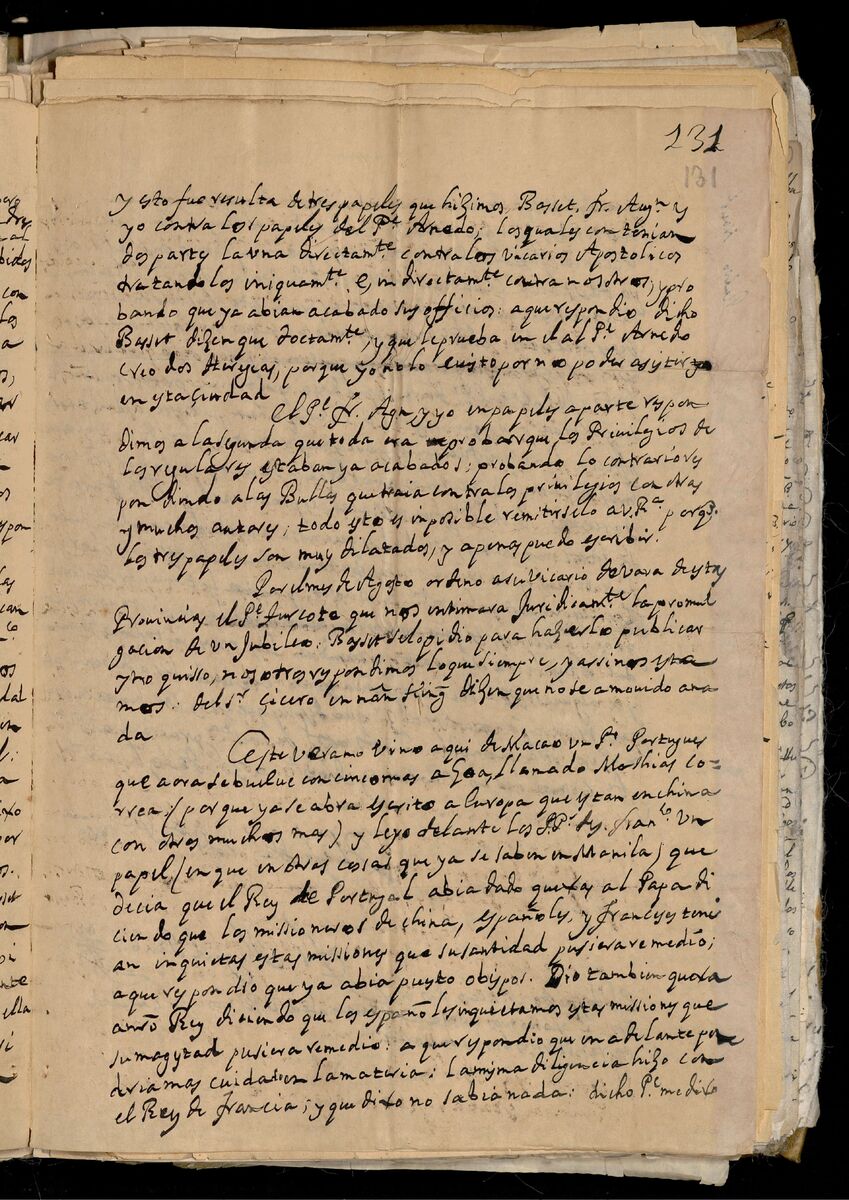 131
131
y esto fue resulta de tres papeles que hizimos, Basset, fr. Augn y
yo contra los papeles del Pe Arnedo; los quales contenian
dos partes la una directamte contra los vicarios Apostolicos
tratandolos iniquamte e indirectamte contra nosotros, y pro
bando que ya abian acabado sus officios: a que respondio dicho
Basset dizen que doctamte, y que le prueba en el al Pe Arnedo
creo dos Heregias, porque yo no lo e visto por no poder asistir
en esta Ciudad
El Pe fr. Agn, y yo en papeles aparte respon
dimos a la segunda que toda era probar que los Privilegios de
los regulares estaban ya acabados; probando lo contrario res
pondiendo a las Bullas que traia contra los privilegios con otras
y muchos autores; todo esto es inposible remitirselo a V. Ra porq.
los tres papeles son muy dilatados, y apenas puedo escribir.
Por el mes de Agosto ordino a su vicario de vara destas
Provincias el Pe Turcote que nos intimara Juridicamte la promul
gacion de un Jubileo: Basset se lo pidio para hazerlo publicar
y no quisso, nosotros respondimos lo que siempre, y assi nos esta
mos: del Sr Cicero en nan King dizen que no se a movido a na
da
Este verano vino aqui de Macao un Pe Portugues
que aora se buelve con cinco mas a Goa, llamado Mathias Co-
rrea: (porque ya se abra escrito a Europa que estan en china
con otros muchos mas) y leyo delante los PPs de S. franco un
papel, (en que en otras cosas que ya se saben en Manila) que
decia que el Rey de Portugal abia dado quexas al Papa di
ciendo que los missioneros de China, españoles, y franceses teni
an inquietas estas missiones que su santidad pusiera remedio;
a que respondio que ya abia puesto obispos. Dio tambien quexa
a nro Rey diciendo que los españoles inquietamos estas missiones que
su magestad pusiera remedio: a que respondio que en adelante pon
deria mas cuidado en la materia: la misma diligencia hizo con
el Rey de francia; y que dixo no sabia nada: dicho Pe me dixo